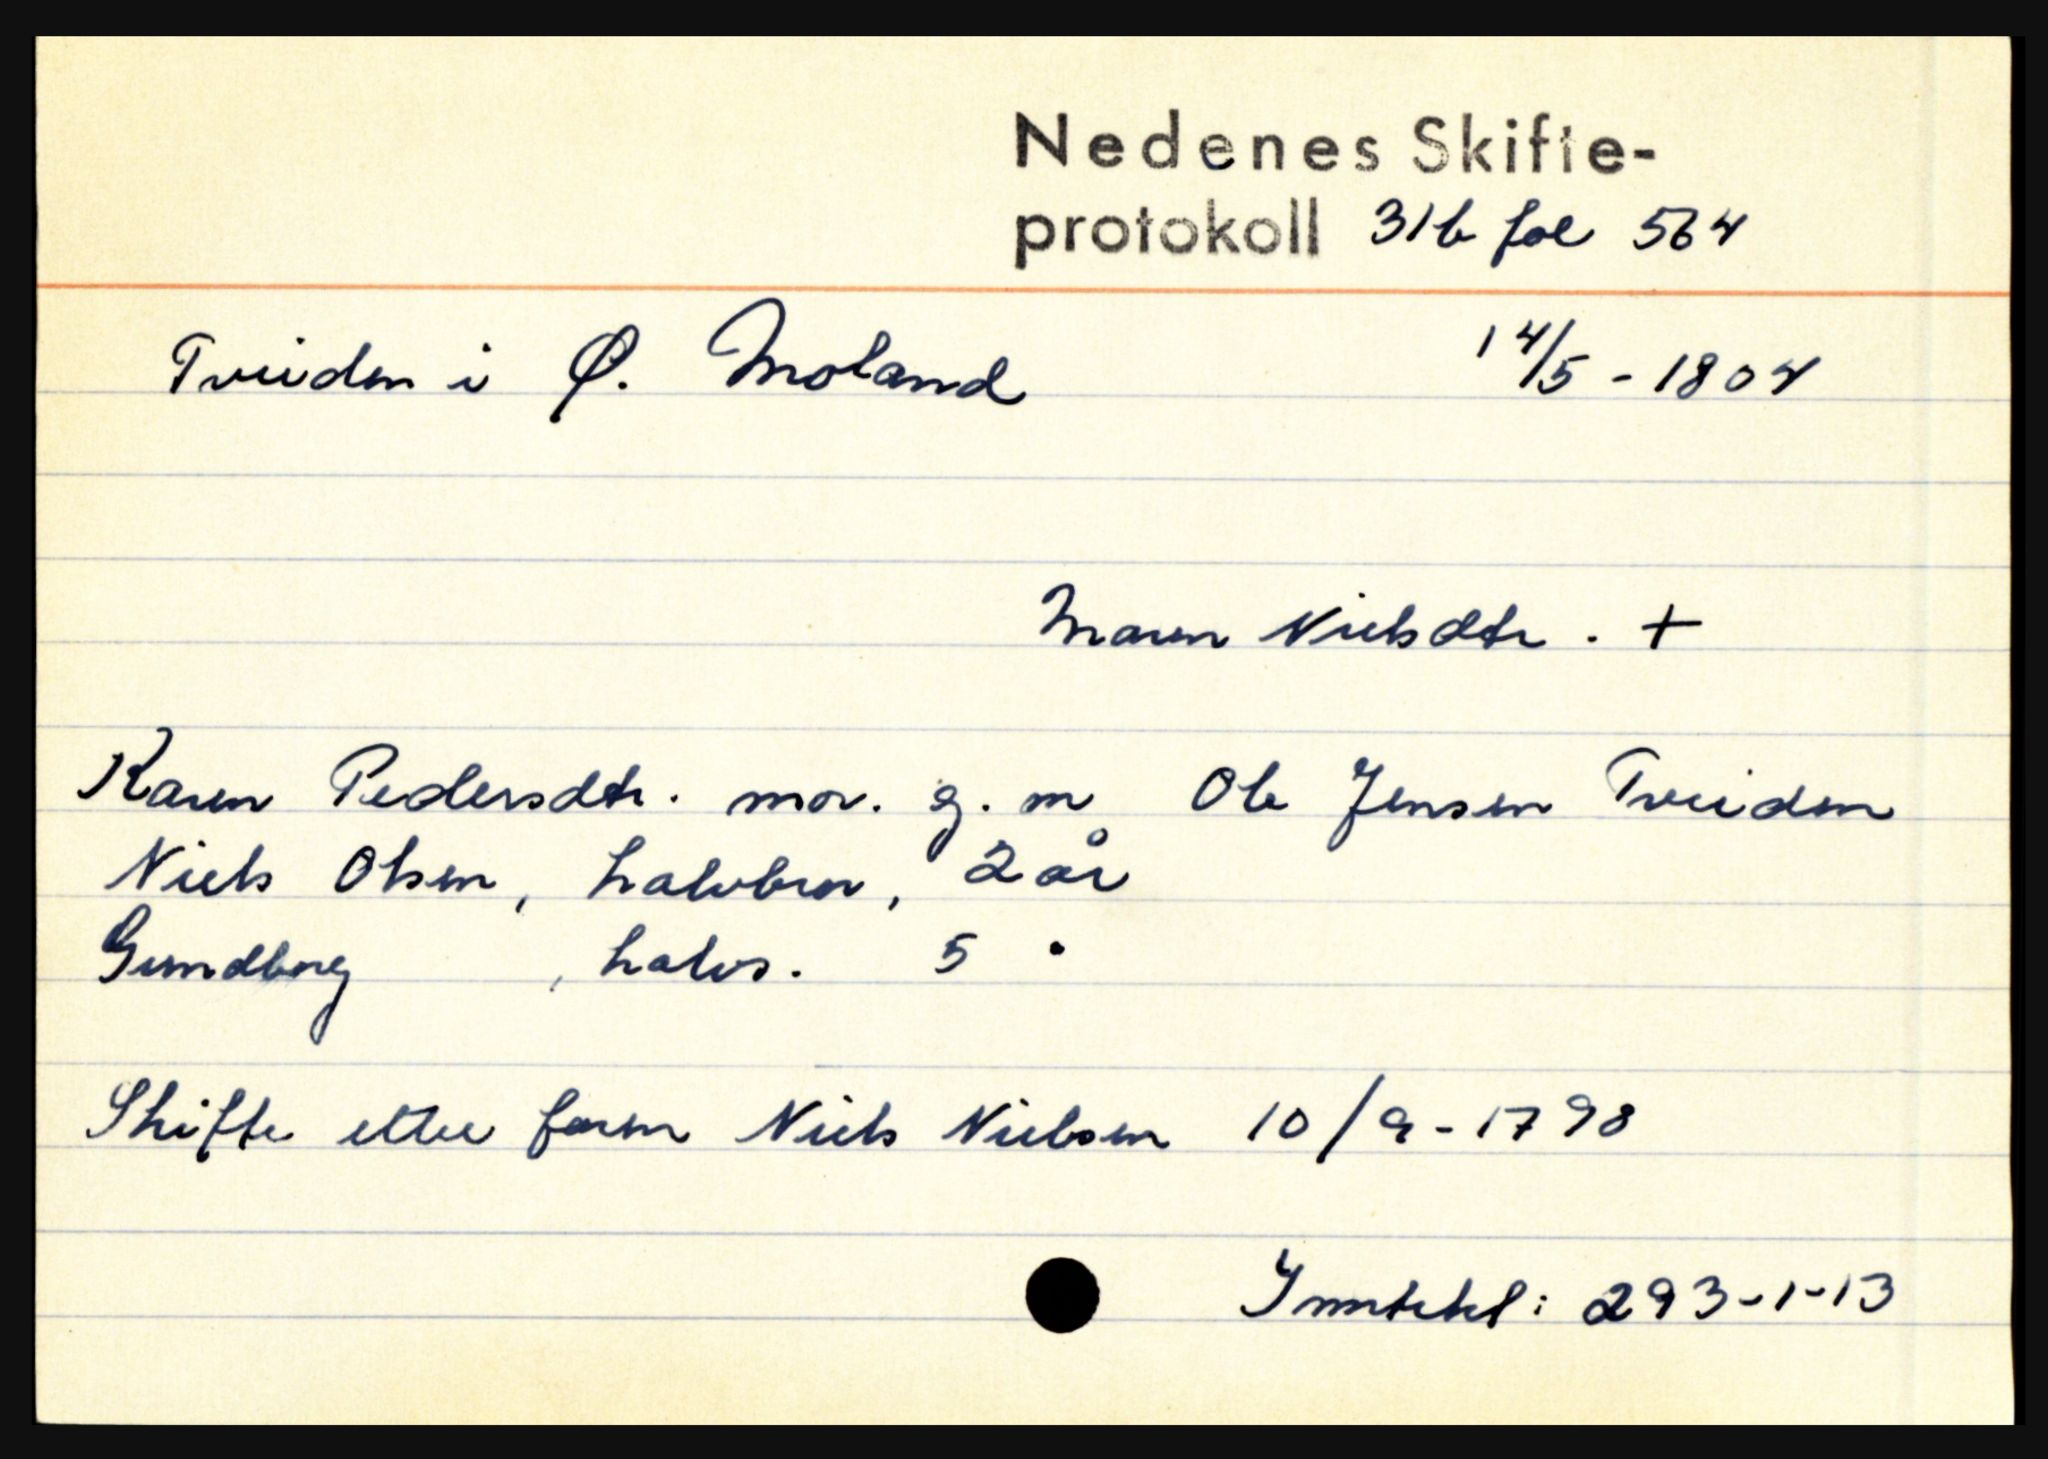 Nedenes Skifte-
protokoll 31b fol 564
Tveiden i Ø. Moland 14/5 - 1804
Maren Nielsdtr. +
Karen Pedersdtr. mor. g. m Ole Jensen Tveiden
Niels Olsen, halvbror, 2 år
Gundborg , halvs. 5 "
Skifte etter faren Niels Nielsen 10/9-1798
Inntekt: 293-1-13